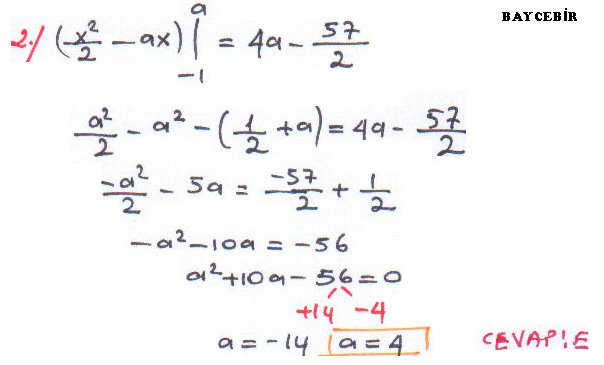 BAYCEBİR
2./ (x²/2 − ax) |₋₁ᵃ = 4a − 57/2
a²/2 − a² − (1/2 + a) = 4a − 57/2
−a²/2 − 5a = −57/2 + 1/2
−a² − 10a = −56
a² + 10a − 56 = 0
+14 −4
a = −14 a = 4 CEVAP: E